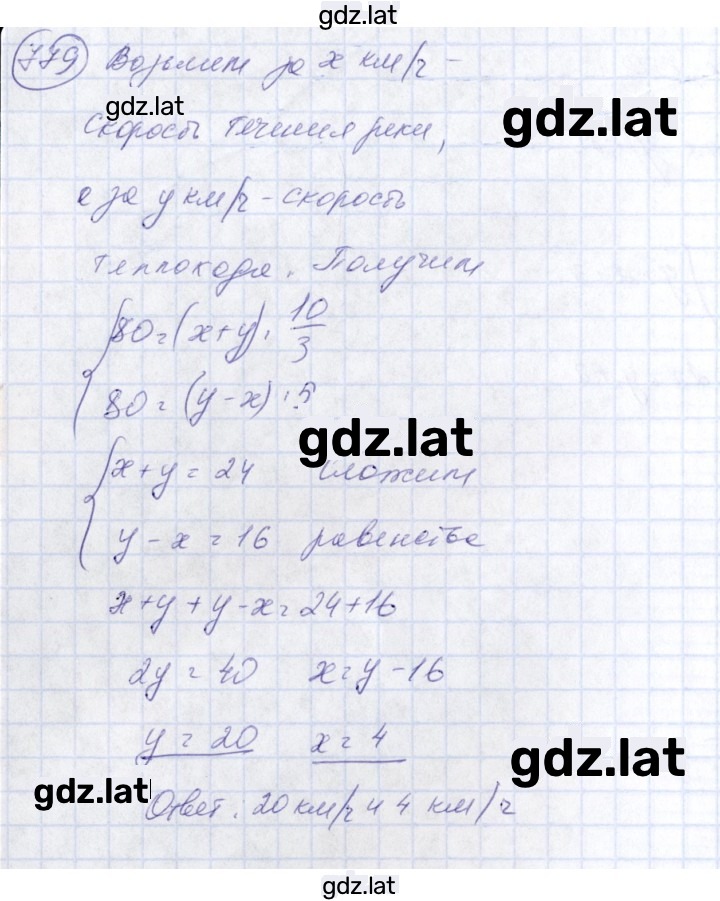 gdz.lat
779 Возьмем за x км/ч –
gdz.lat
скорость течения реки,
gdz.lat
а за y км/ч – скорость
теплохода. Получим
80 = (x+y) · 10/3
80 = (y-x) · 5
gdz.lat
x+y = 24 сложим
y-x = 16 равенства
x+y+y-x = 24+16
2y = 40 x = y-16
y = 20 x = 4
gdz.lat
gdz.lat
Ответ: 20 км/ч и 4 км/ч
gdz.lat